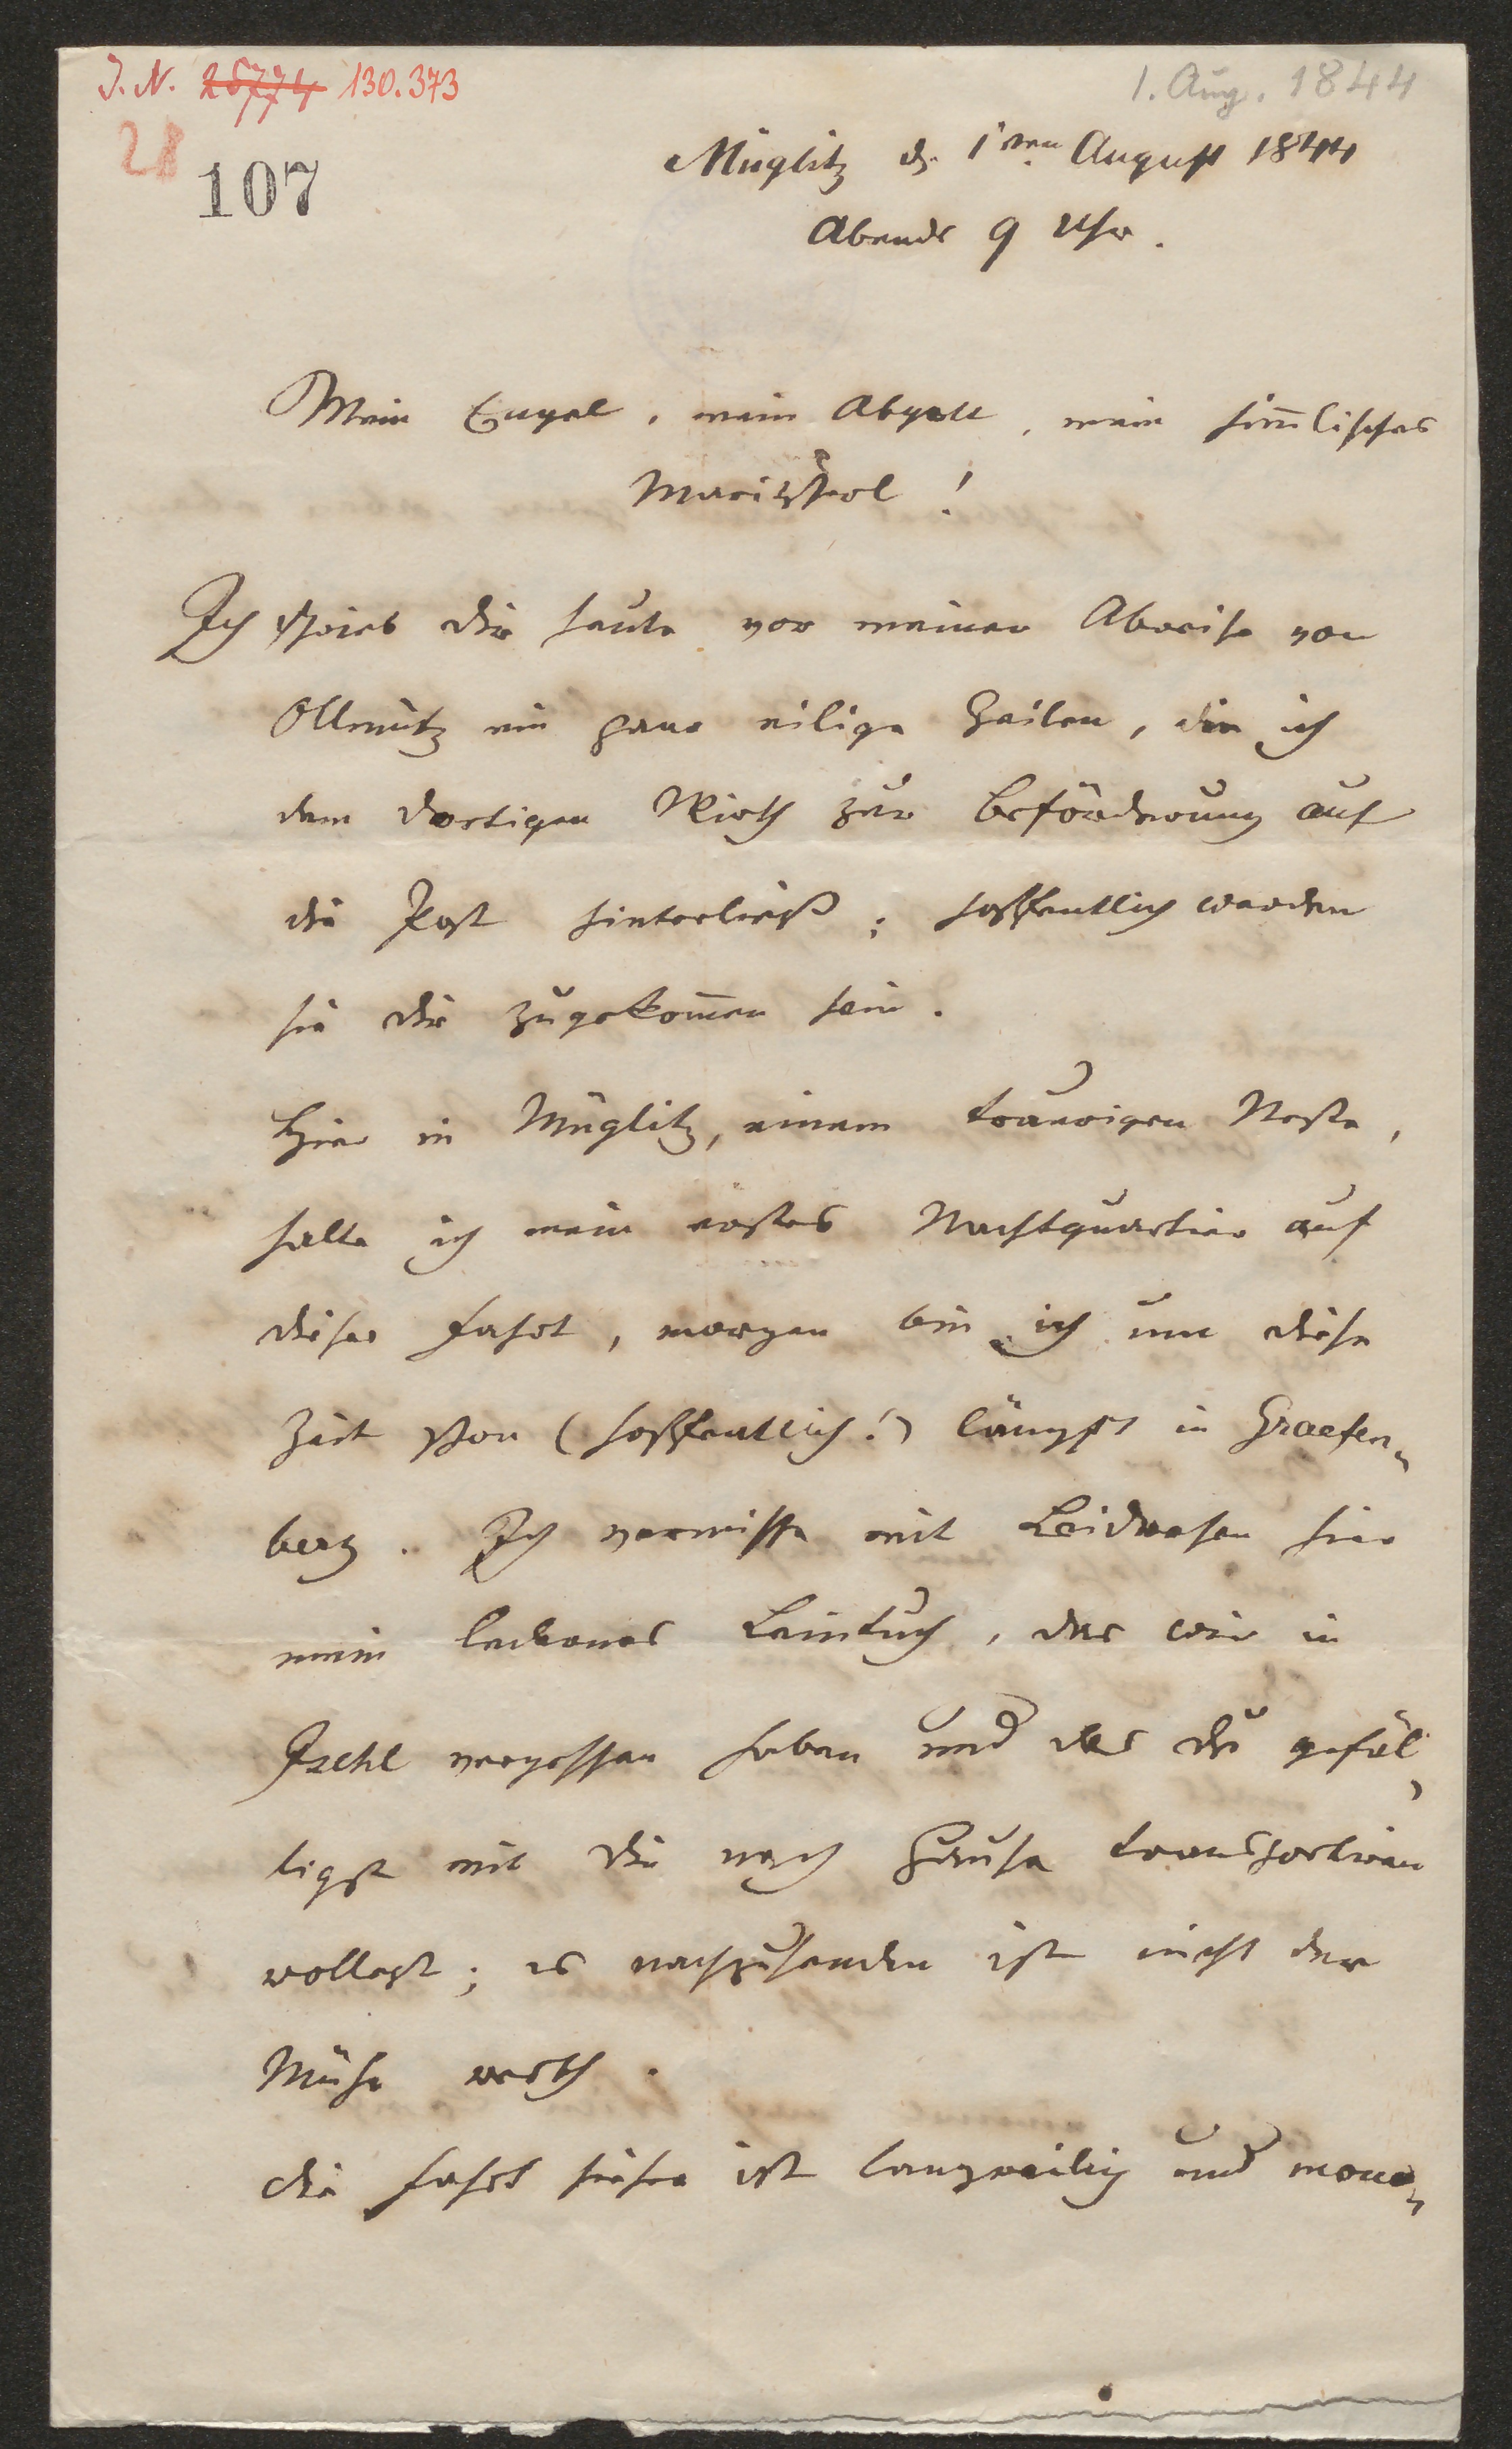 J. N. 25774 130.373
1. Aug. 1844
28
107
Müglitz d. 1ten August 1844
Abends 9 Uhr.
Mein Engel, mein Abgott, mein him̅lisches
Ich schrieb dir heute vor meiner Abreise von
Ollmütz ein paar eilige Zeilen, die ich
dem dortigen Wirth zur Beförderung auf
die Post hinterließ; hoffentlich werden
sie dir zugekom̅en sein.
Hier in Müglitz, einem traurigen Neste,
halte ich mein erstes Nachtquartier auf
dieser Fahrt, morgen bin ich um diese
Zeit schon (hoffentlich!) längst in Graefen„
berg. Ich vermisse mit Leidwesen hier
mein ledernes Leintuch, das wir in
Ischl vergessen haben und das du gefäl„
ligst mit dir nach Hause transportiren
wollest; es nachzusenden ist nicht der
Mühe werth.
Die Fahrt hieher ist langweilig und mono„